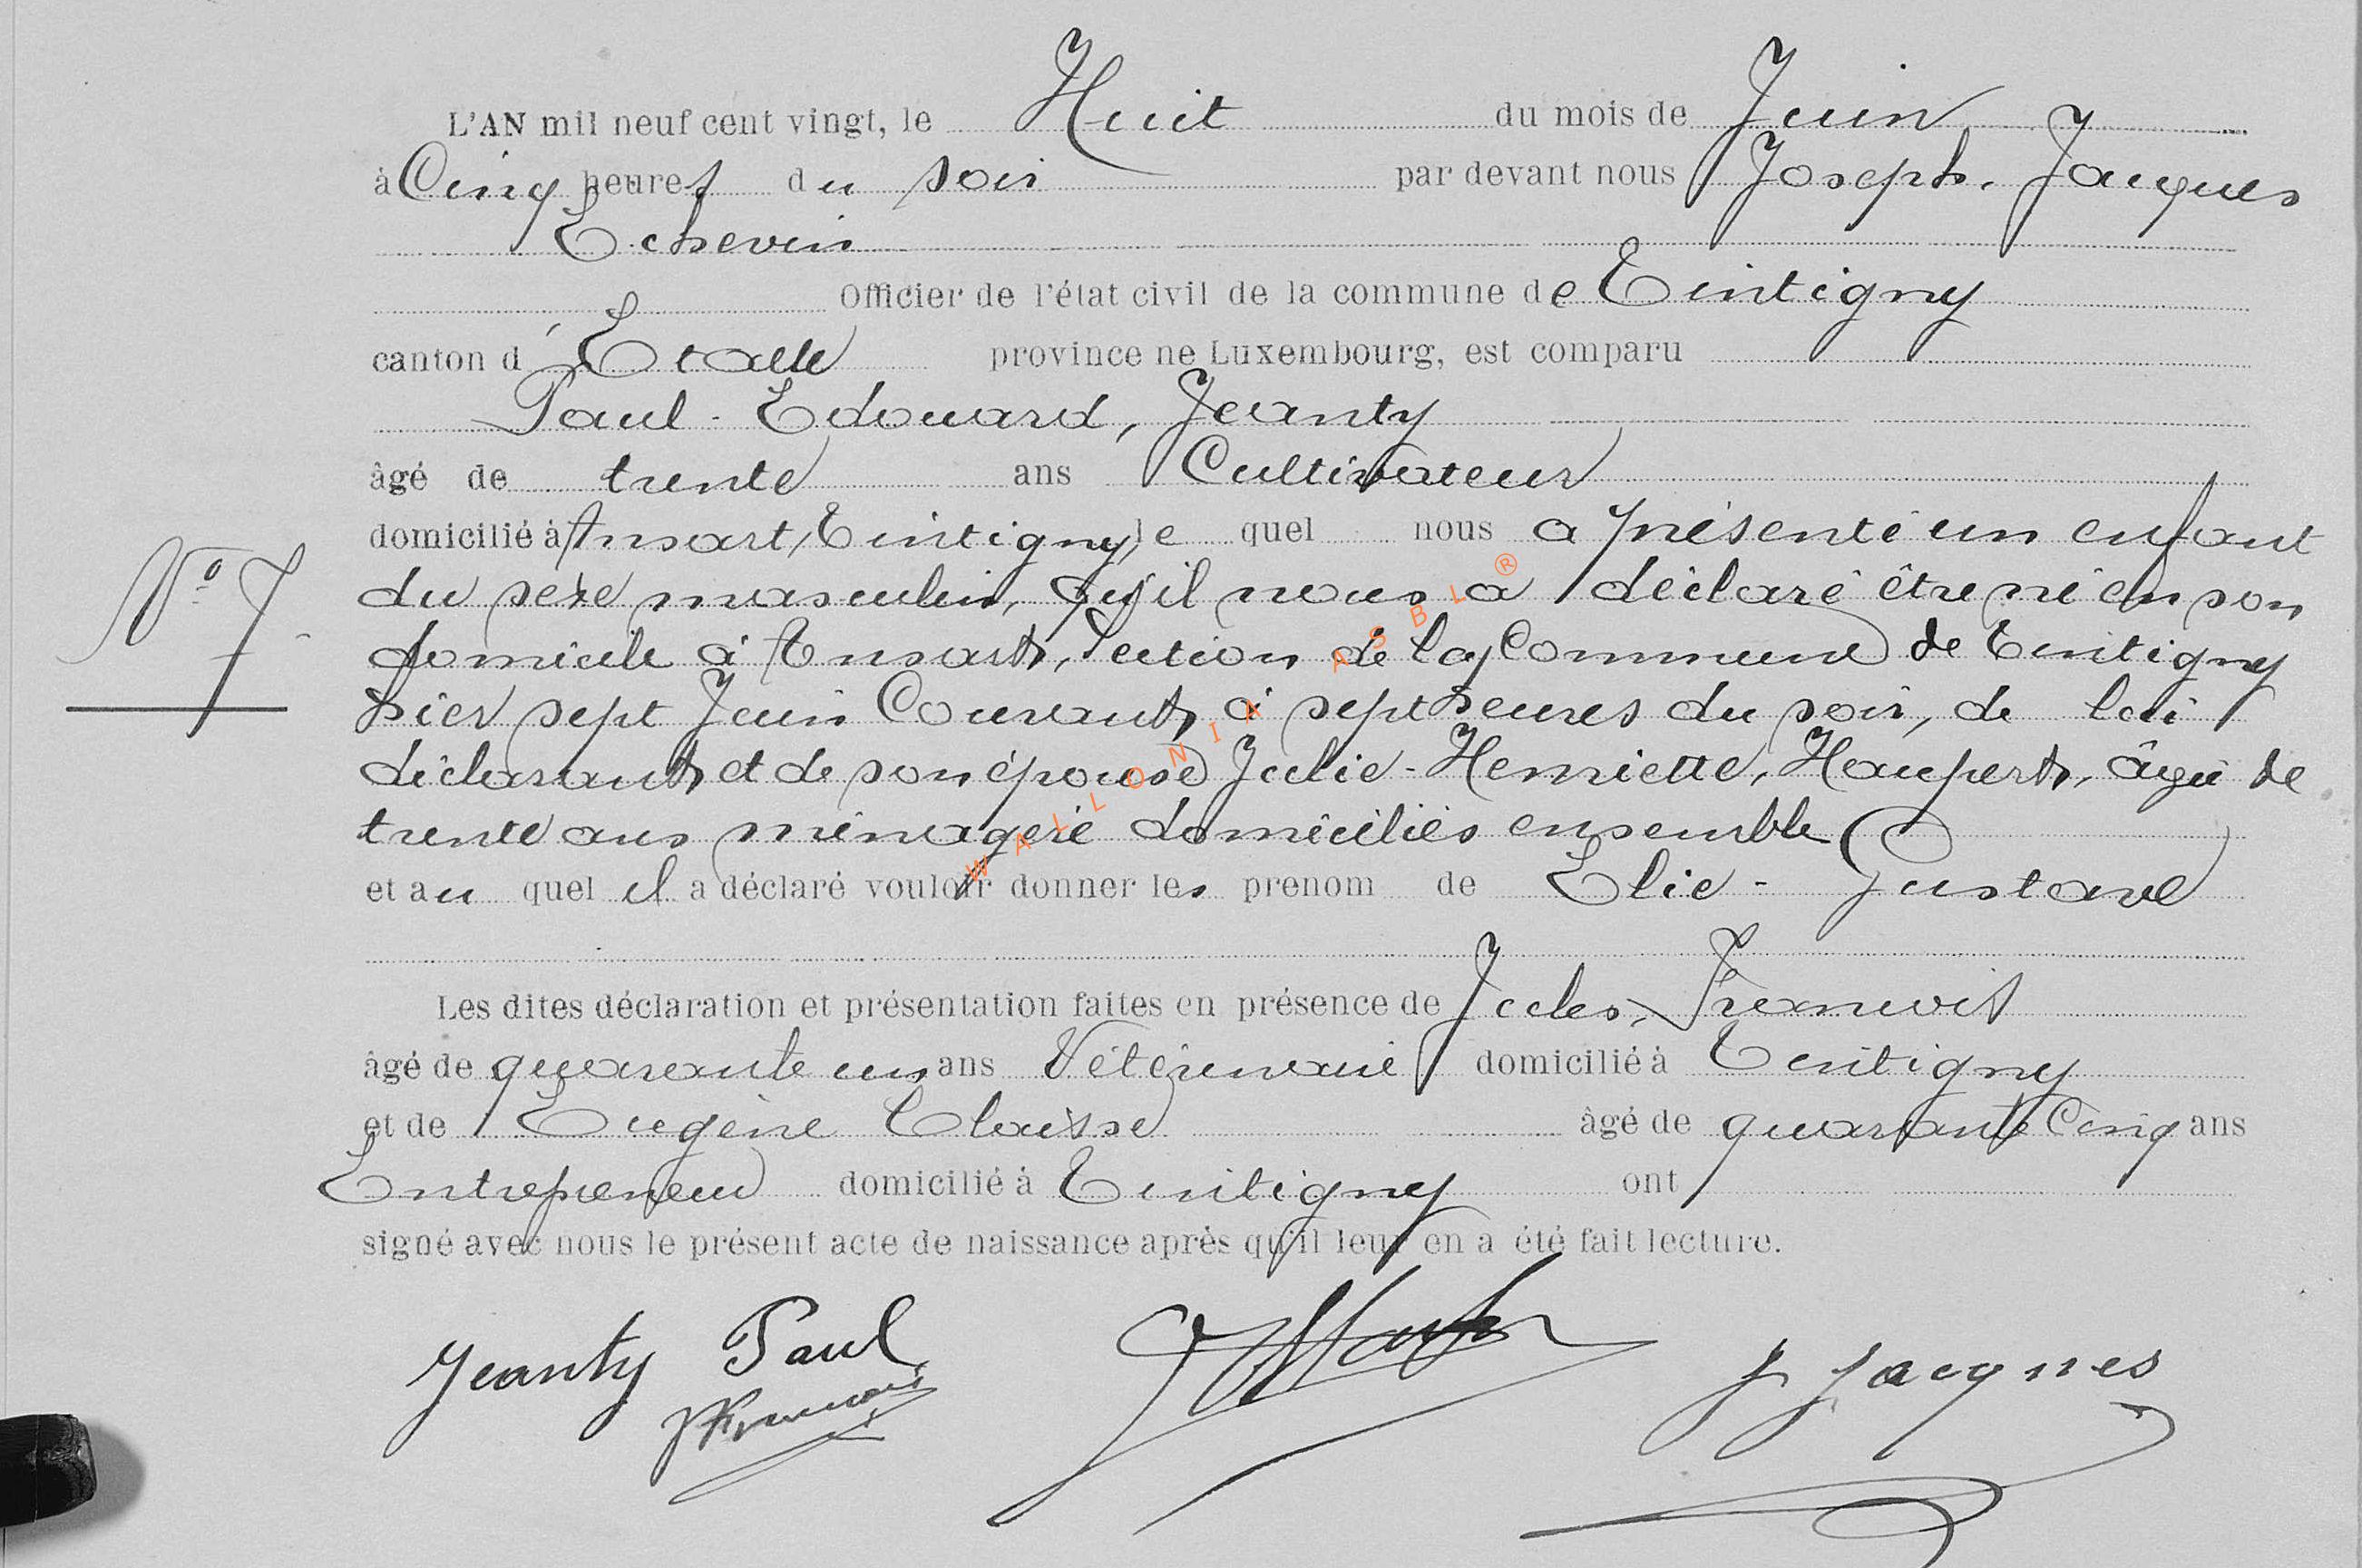 L'AN mil neuf cent vingt, le Huit du mois de Juin
à Cinq heures du soir par devant nous Joseph. Jacques
Echevin
Officier de l'état civil de la commune de Tintigny
canton d'Etalle province ne Luxembourg, est comparu
Paul-Edouard, Jeanty
âgé de trente ans Cultivateur
domicilié à Ansart, Tintigny, le quel nous a présenté un enfant
N° 7
du sexe masculin, qu'il nous a déclaré être né en son
domicile à Ansart, section de la Commune de Tintigny
hier sept Juin Courant, à sept heures du soir, de lui
déclarant et de son épouse Julie-Henriette, Haupert, âgée de
trente ans ménagère domiciliés ensemble
et au quel il a déclaré vouloir donner les prenom de Elie-Gustave
Les dites déclaration et présentation faites en présence de Jules,
âgé de quarante un ans Vétérinaire domicilié à Tintigny
et de Eugène Claisse âgé de quarante Cinq ans
Entrepreneur domicilié à Tintigny ont
signé avec nous le présent acte de naissance après qu'il leur en a été fait lecture.
Jeanty Paul
J Jacques
WALLONIA ASBL ®